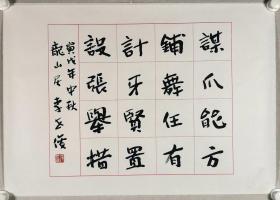 設計鋪謀
張牙舞爪
舉賢任能
措置有方
寅戊年中秋
山居李